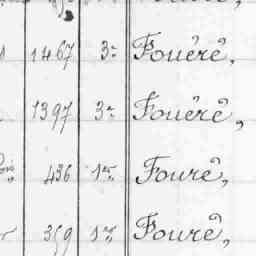 1467 3e Fouéré,
1397 3e Fouéré,
436 1re Fouré,
359 1re Fouré,